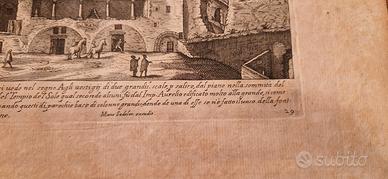 si uede nel segno. A gli uestigij di due grandiss. scale p salire, dal piano nella sommità del
del Tempio del Sole qual secondo alcuni fu dal Imp. Aurelio edificato molto alla grande, si come
quando questi di parechie base di colonne grandi, donde de una di esse se n'è fatto il uaso della fon
ne.
Marco Sadeler excudit
29
subito